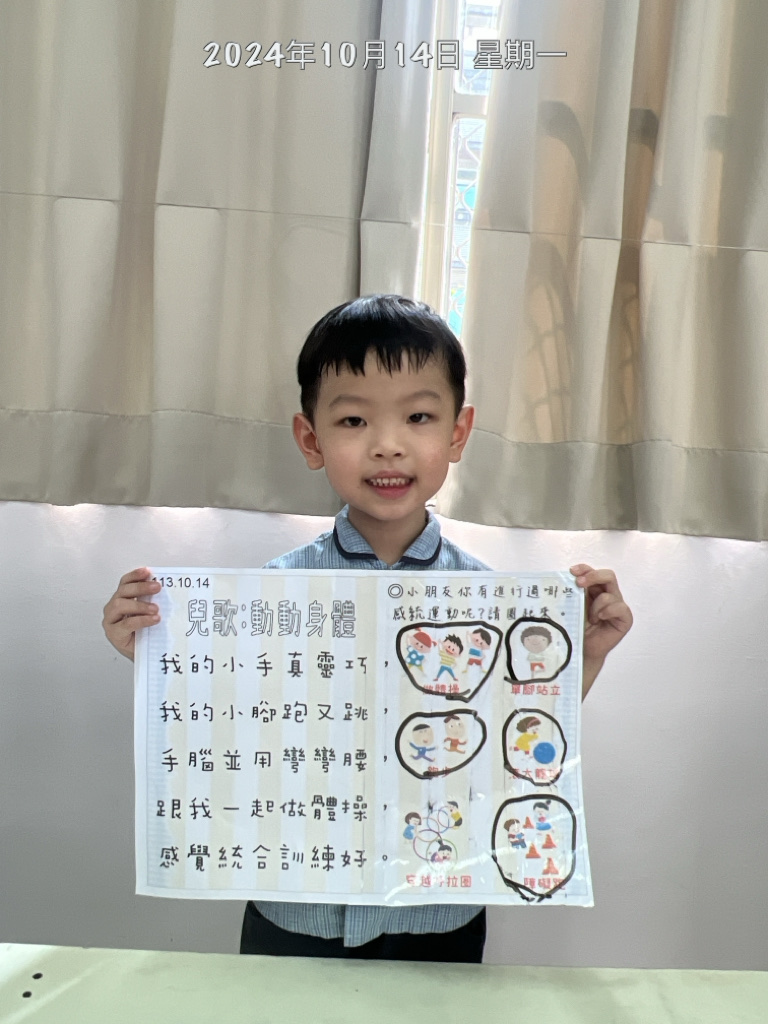 2024年10月14日 星期一
113.10.14
兒歌:動動身體
我的小手真靈巧，
我的小腳跑又跳，
手腦並用彎彎腰，
跟我一起做體操，
感覺統合訓練好。
◎小朋友你有進行過哪些
感統運動呢?請圈起來。
做體操
單腳站立
跑步
滾大籠球
穿越呼拉圈
障礙跑